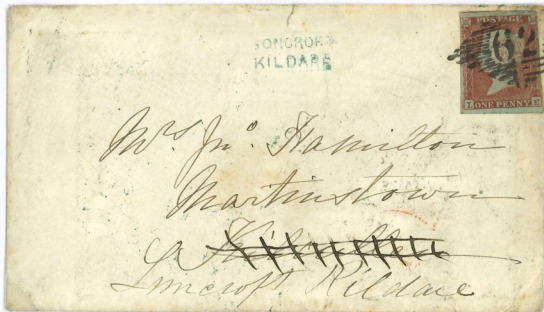 POSTAGE
62
ONE PENNY
KILDARE
Mrs Jno. Hamilton
Martinstown
Kildare